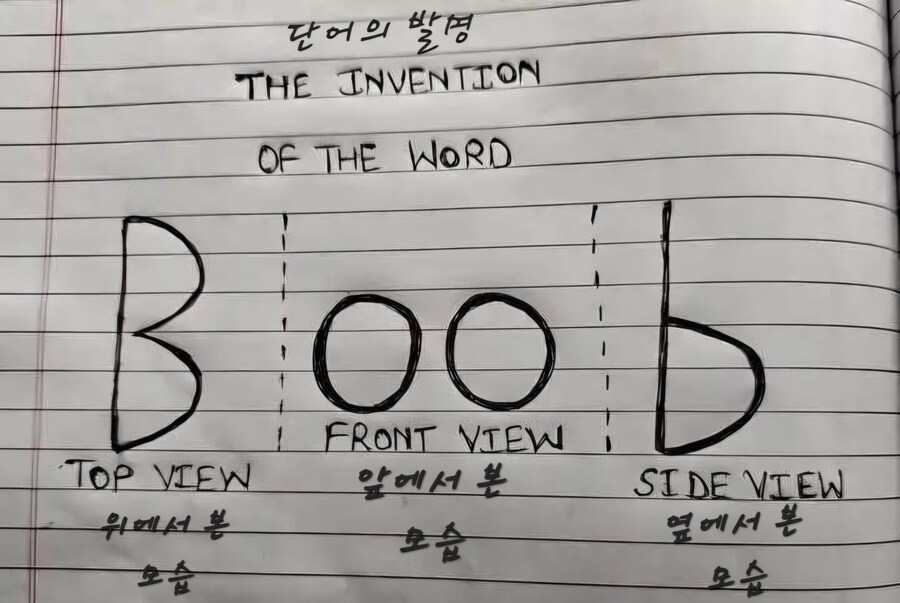 단어의 발명
THE INVENTION
OF THE WORD
B oo b
FRONT VIEW
TOP VIEW
앞에서 본
SIDE VIEW
위에서 본
모습
옆에서 본
모습
모습